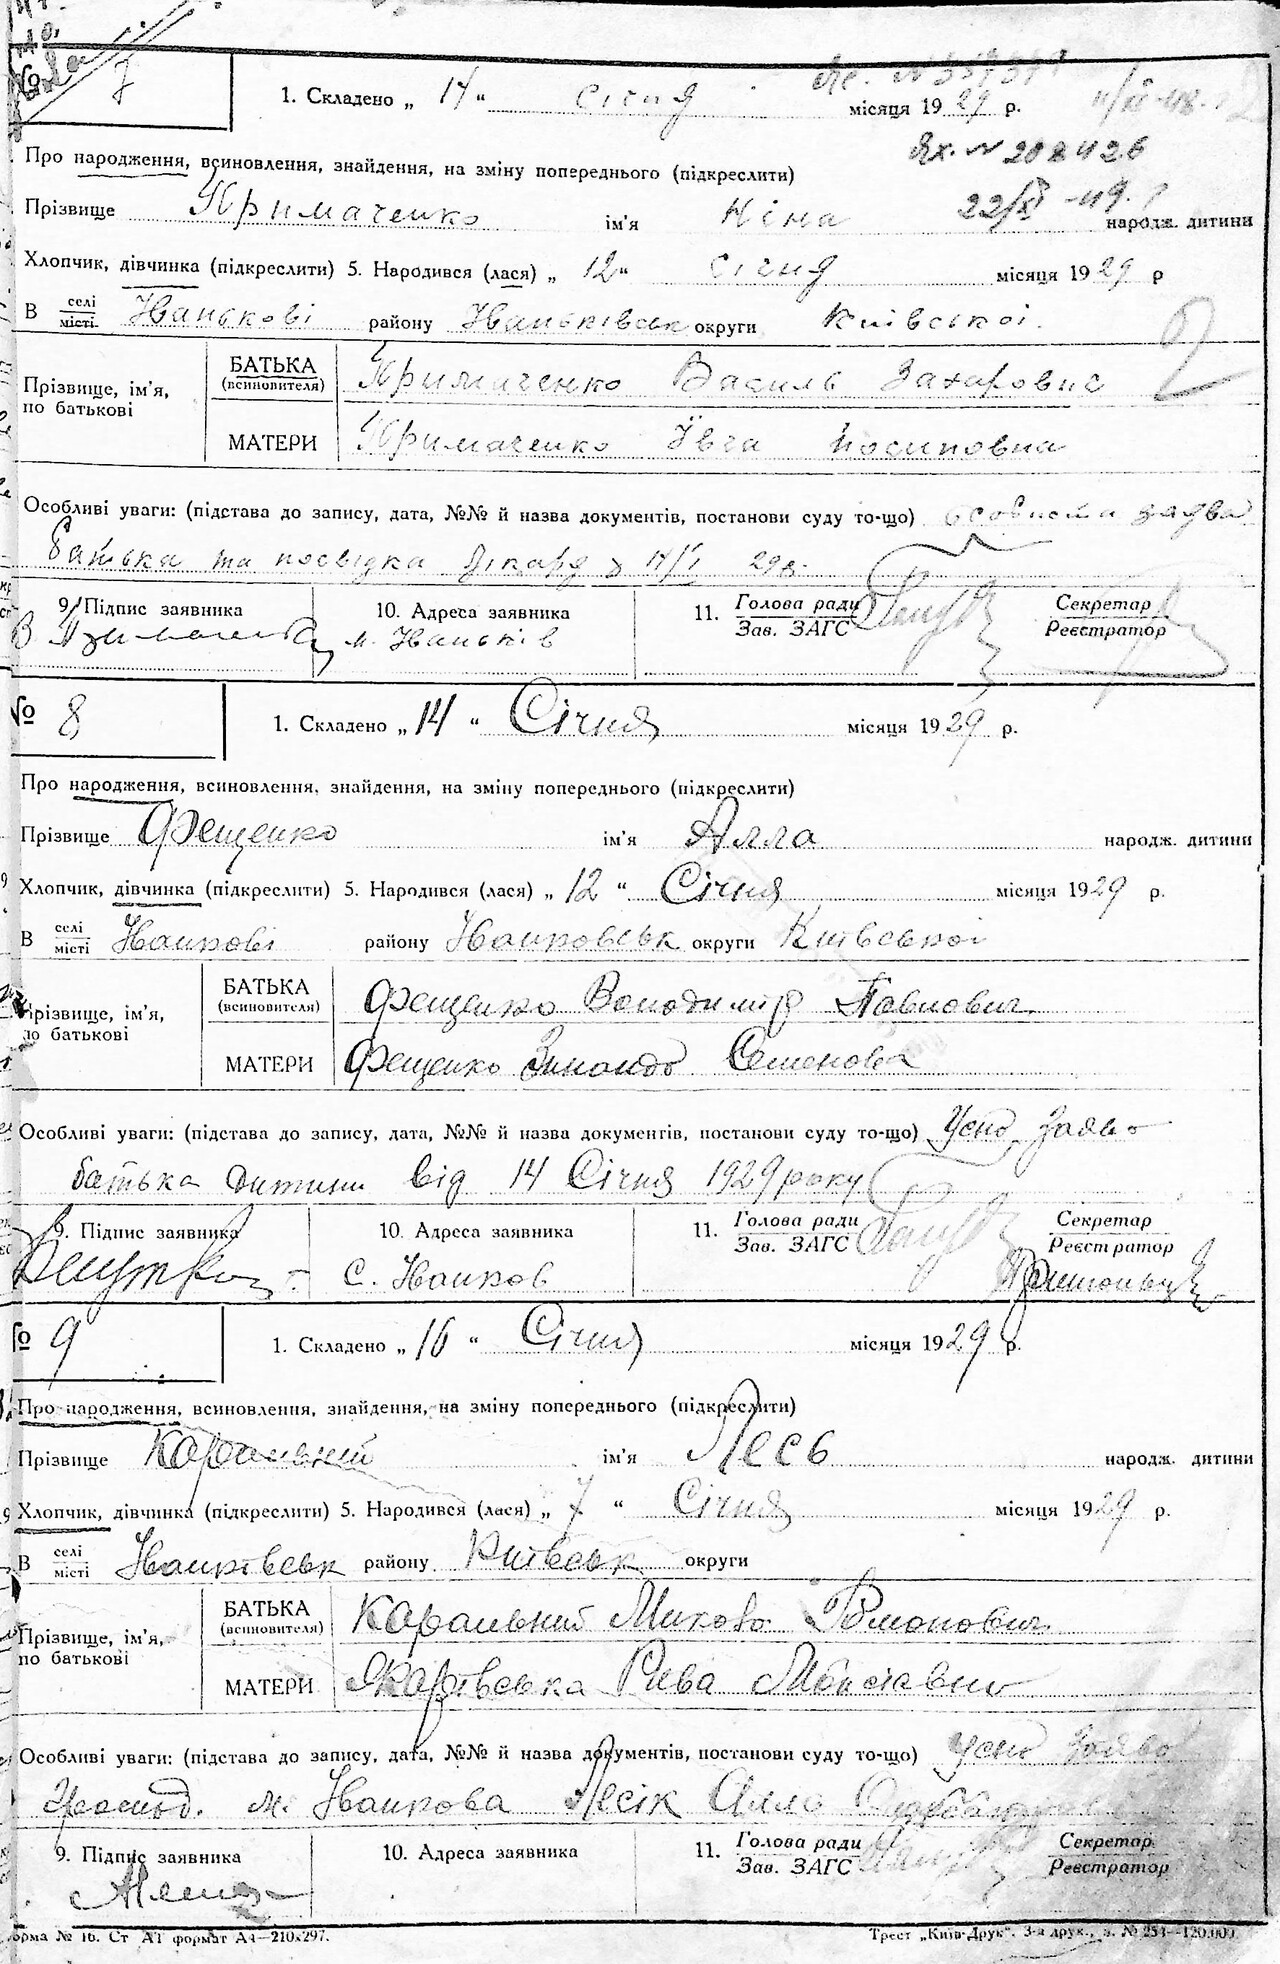 № 7
1. Складено „ 14 “ січня місяця 1929 р.
Вх. № 202426
22/XI -49.
Про народження, всиновлення, знайдення, на зміну попереднього (підкреслити)
Прізвище Примаченко ім'я Ніна народж. дитини
Хлопчик, дівчинка (підкреслити) 5. Народився (лася) „ 12 “ січня місяця 1929 р
В селі місті Іванькові району Іваньківськ округи Київської.
Прізвище, ім'я, по батькові
БАТЬКА (всиновителя) Примаченко Василь Захарович
МАТЕРИ Примаченко Ївга Йосиповна
Особливі уваги: (підстава до запису, дата, №№ й назва документів, постанови суду то-що) особиста заява
батька та посвідка лікаря з 14/I 29р.
9. Підпис заявника 10. Адреса заявника 11. Голова ради Зав. ЗАГС Секретар Реєстратор
м. Іваньків
№ 8
1. Складено „ 14 “ Січня місяця 1929 р.
Про народження, всиновлення, знайдення, на зміну попереднього (підкреслити)
Прізвище Фещенко ім'я Алла народж. дитини
Хлопчик, дівчинка (підкреслити) 5. Народився (лася) „ 12 “ Січня місяця 1929 р.
В селі місті Іванкові району Іванковськ округи Київської
Прізвище, ім'я, по батькові
БАТЬКА (всиновителя) Фещенко Володимір Павлович
МАТЕРИ Фещенко Семенова
Особливі уваги: (підстава до запису, дата, №№ й назва документів, постанови суду то-що) Усна Заява
батька дитини від 14 Січня 1929 року
9. Підпис заявника 10. Адреса заявника 11. Голова ради Зав. ЗАГС Секретар Реєстратор
с. Іванков
№ 9
1. Складено „ 16 “ Січня місяця 1929 р.
Про народження, всиновлення, знайдення, на зміну попереднього (підкреслити)
Прізвище ім'я Лесь народж. дитини
Хлопчик, дівчинка (підкреслити) 5. Народився (лася) „ 7 “ Січня місяця 1929 р.
В селі місті Іванківськ району Київськ округи
Прізвище, ім'я, по батькові
БАТЬКА (всиновителя) Микола Романович
МАТЕРИ Рива
Особливі уваги: (підстава до запису, дата, №№ й назва документів, постанови суду то-що) Усна Заява
м. Іванкова Лесік Алла
9. Підпис заявника 10. Адреса заявника 11. Голова ради Зав. ЗАГС Секретар Реєстратор
орма № 16. Ст А1 формат А4—210х297. Трест „Київ-Друк“. 3-я друк., з. № 254—120.000